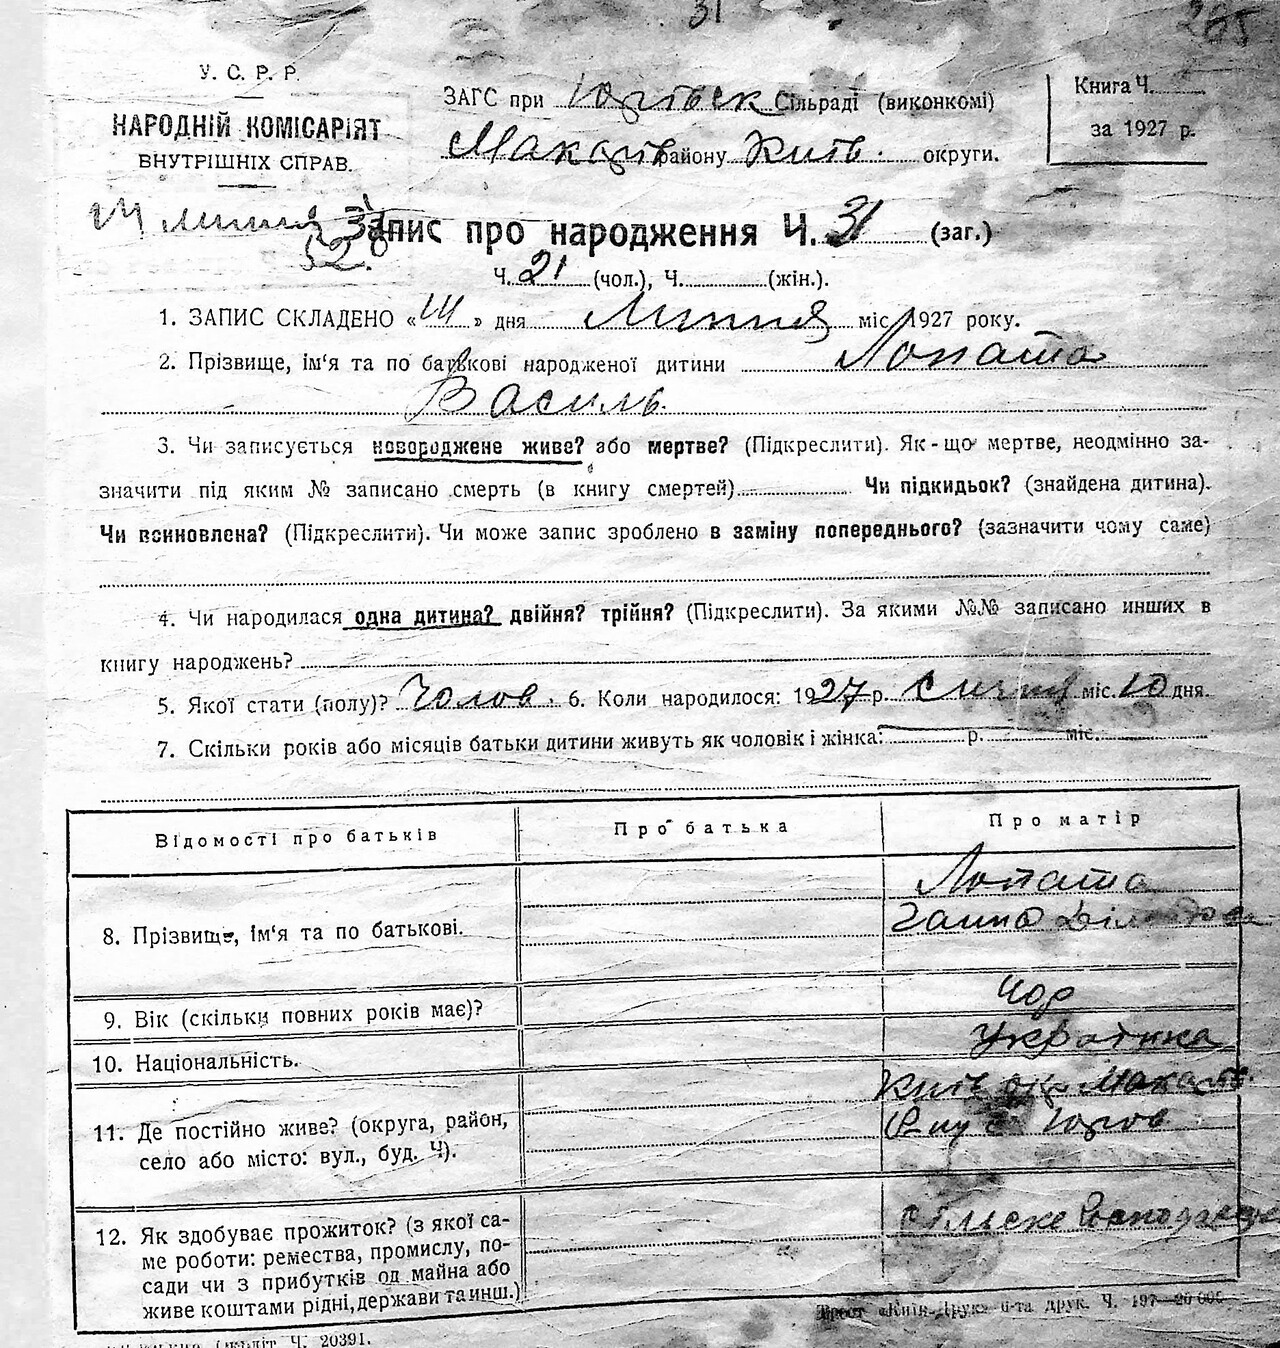 31
285
У. С. Р. Р.
НАРОДНІЙ КОМІСАРІЯТ
ВНУТРІШНІХ СПРАВ.
ЗАГС при Юрівськ Сільраді (виконкомі)
Макарів району Київ. округи.
Книга Ч.
за 1927 р.
Запис про народження Ч. 31 (заг.)
Ч. 21 (чол.), Ч. (жін.).
1. ЗАПИС СКЛАДЕНО « » дня липня міс 1927 року.
2. Прізвище, ім'я та по батькові народженої дитини Лопата
Василь.
3. Чи записується новороджене живе? або мертве? (Підкреслити). Як-що мертве, неодмінно за-
значити під яким № записано смерть (в книгу смертей) Чи підкидьок? (знайдена дитина).
Чи всиновлена? (Підкреслити). Чи може запис зроблено в заміну попереднього? (зазначити чому саме)
4. Чи народилася одна дитина? двійня? трійня? (Підкреслити). За якими №№ записано инших в
книгу народжень?
5. Якої стати (полу)? Чолов. 6. Коли народилося: 1927 р. січня міс. 10 дня.
7. Скільки років або місяців батьки дитини живуть як чоловік і жінка: р. міс.
Відомості про батьків
Про батька
Про матір
8. Прізвище, ім'я та по батькові.
Лопата
Ганна
9. Вік (скільки повних років має)?
10. Національність.
Українка
11. Де постійно живе? (округа, район,
село або місто: вул., буд. Ч).
Київ окр Макарів.
Р-ну с Юрів
12. Як здобуває прожиток? (з якої са-
ме роботи: ремества, промислу, по-
сади чи з прибутків од майна або
живе коштами рідні, держави та инш.)
сільське
Трест «Київ-Друк» 6-та друк. Ч. 197—20 000
Ч. 20391.